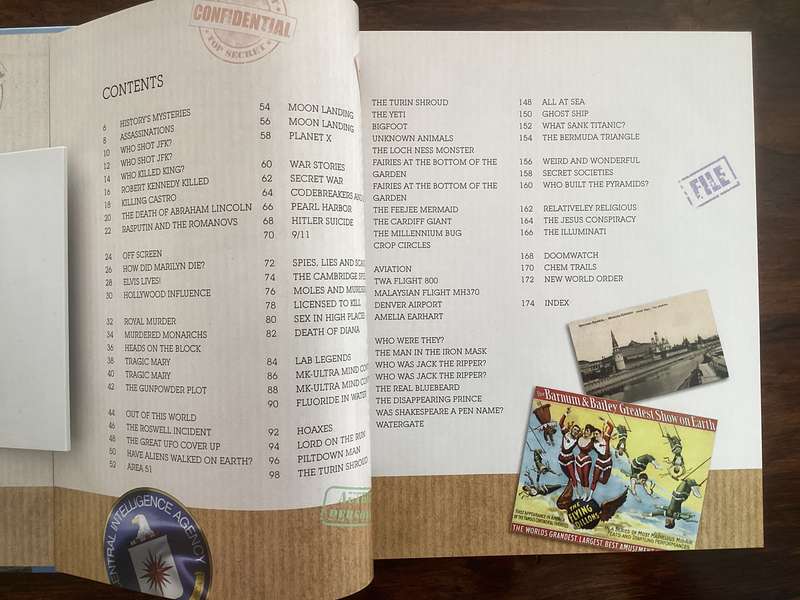 CONFIDENTIAL
TOP SECRET
CONTENTS
6 HISTORY'S MYSTERIES
8 ASSASSINATIONS
10 WHO SHOT JFK?
12 WHO SHOT JFK?
14 WHO KILLED KING?
16 ROBERT KENNEDY KILLED
18 KILLING CASTRO
20 THE DEATH OF ABRAHAM LINCOLN
22 RASPUTIN AND THE ROMANOVS
24 OFF SCREEN
26 HOW DID MARILYN DIE?
28 ELVIS LIVES!
30 HOLLYWOOD INFLUENCE
32 ROYAL MURDER
34 MURDERED MONARCHS
36 HEADS ON THE BLOCK
38 TRAGIC MARY
40 TRAGIC MARY
42 THE GUNPOWDER PLOT
44 OUT OF THIS WORLD
46 THE ROSWELL INCIDENT
48 THE GREAT UFO COVER UP
50 HAVE ALIENS WALKED ON EARTH?
52 AREA 51
54 MOON LANDING
56 MOON LANDING
58 PLANET X
60 WAR STORIES
62 SECRET WAR
64 CODEBREAKERS
66 PEARL HARBOR
68 HITLER SUICIDE
70 9/11
72 SPIES, LIES AND
74 THE CAMBRIDGE
76 MOLES AND
78 LICENSED TO KILL
80 SEX IN HIGH PLACE
82 DEATH OF DIANA
84 LAB LEGENDS
86 MK-ULTRA MIND
88 MK-ULTRA MIND
90 FLUORIDE IN WATER
92 HOAXES
94 LORD ON THE RUN
96 PILTDOWN MAN
98 THE TURIN SHROUD
CENTRAL INTELLIGENCE AGENCY
THE TURIN SHROUD
THE YETI
BIGFOOT
UNKNOWN ANIMALS
THE LOCH NESS MONSTER
FAIRIES AT THE BOTTOM OF THE
GARDEN
FAIRIES AT THE BOTTOM OF THE
GARDEN
THE FEEJEE MERMAID
THE CARDIFF GIANT
THE MILLENNIUM BUG
CROP CIRCLES
AVIATION
TWA FLIGHT 800
MALAYSIAN FLIGHT MH370
DENVER AIRPORT
AMELIA EARHART
WHO WERE THEY?
THE MAN IN THE IRON MASK
WHO WAS JACK THE RIPPER?
WHO WAS JACK THE RIPPER?
THE REAL BLUEBEARD
THE DISAPPEARING PRINCE
WAS SHAKESPEARE A PEN NAME?
WATERGATE
148 ALL AT SEA
150 GHOST SHIP
152 WHAT SANK TITANIC?
154 THE BERMUDA TRIANGLE
156 WEIRD AND WONDERFUL
158 SECRET SOCIETIES
160 WHO BUILT THE PYRAMIDS?
162 RELATIVELEY RELIGIOUS
164 THE JESUS CONSPIRACY
166 THE ILLUMINATI
168 DOOMWATCH
170 CHEM TRAILS
172 NEW WORLD ORDER
174 INDEX
FILE
The Barnum & Bailey Greatest Show on Earth
FIRST APPEARANCE IN AMERICA
THE FLYING
A SERIES OF MOST MARVELOUS MID-AIR
FEATS AND STARTLING PERFORMANCES
THE WORLDS GRANDEST, LARGEST, BEST